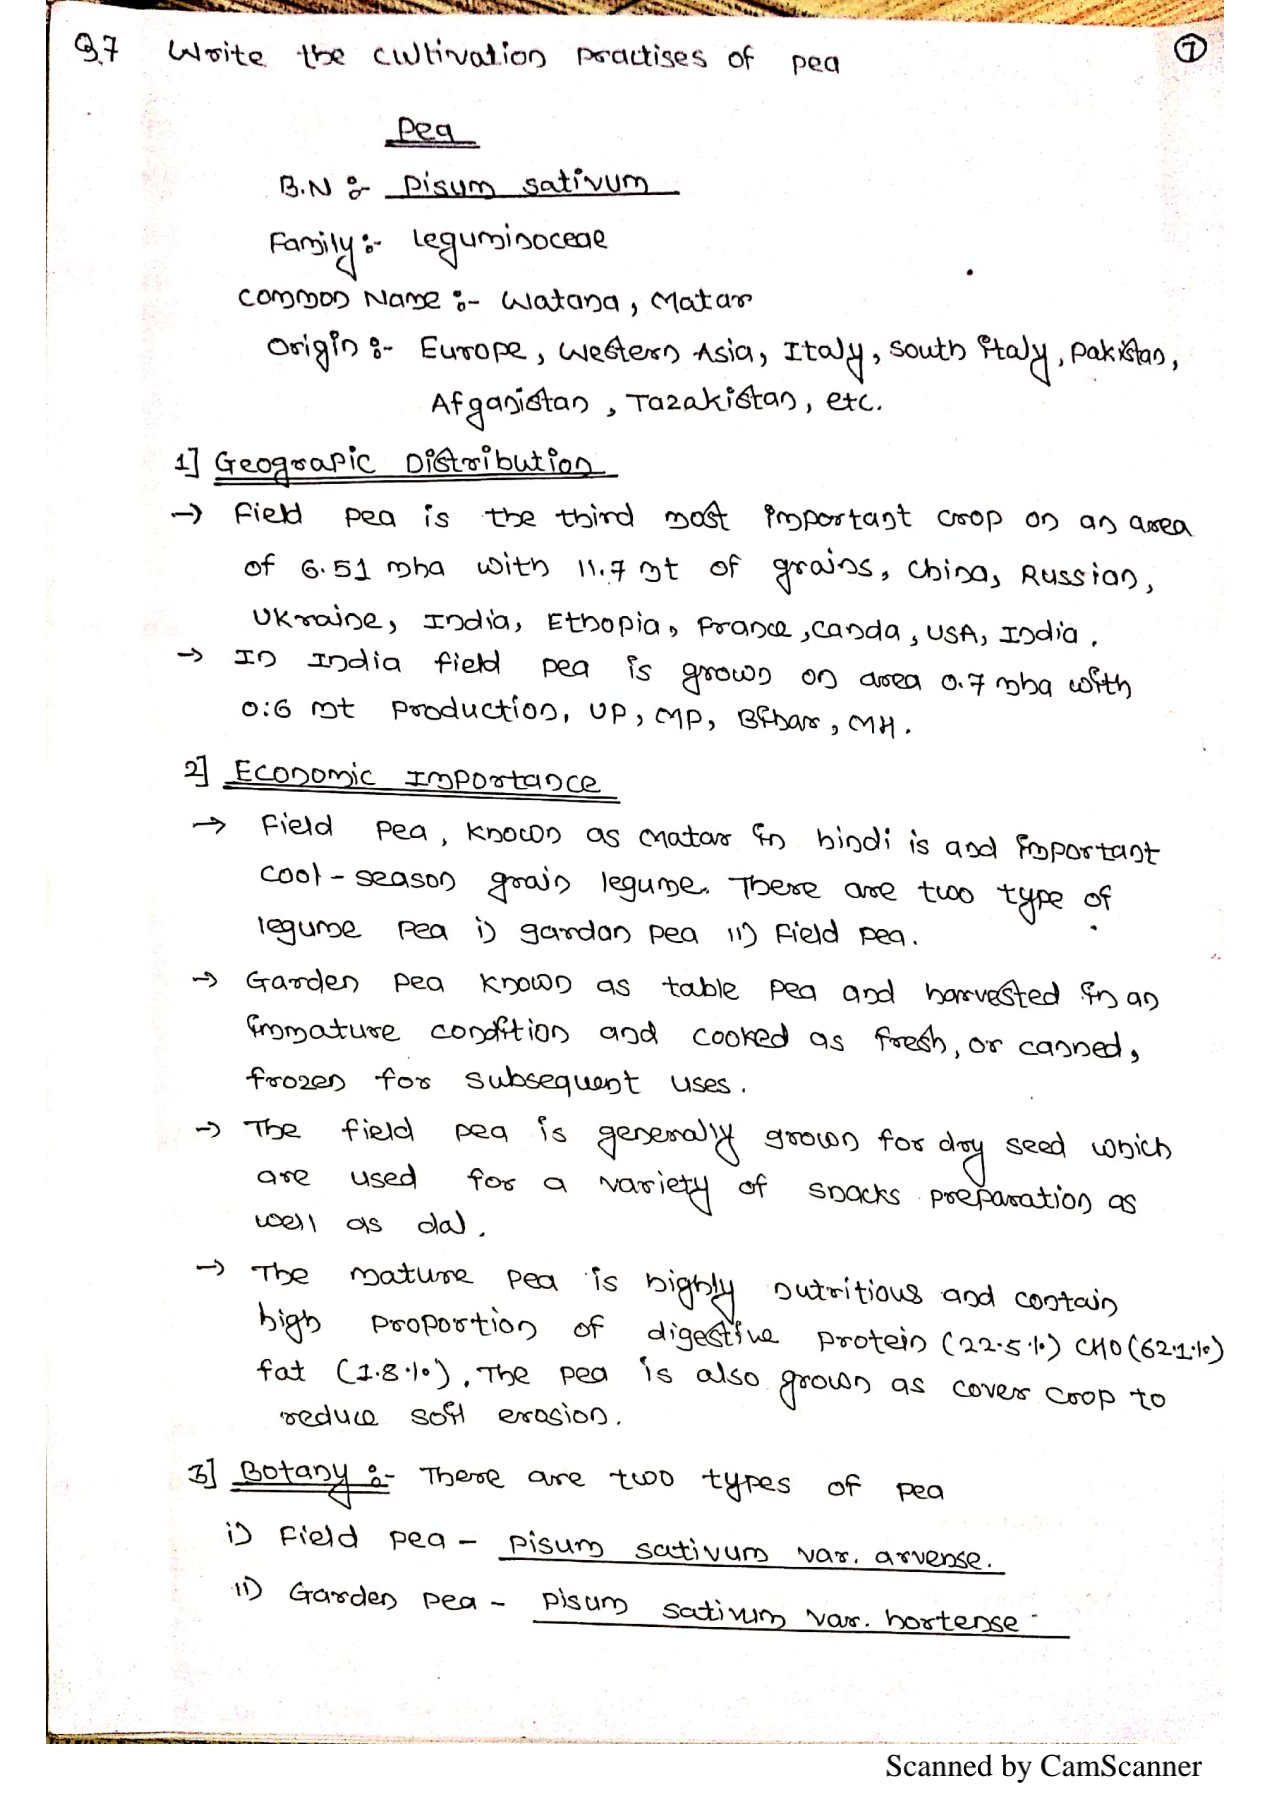 Q.7 Write the cultivation practises of pea
7
Pea
B.N :- Pisum sativum
Family :- Leguminoceae
Common Name :- Watana, Matar
Origin :- Europe, Western Asia, Italy, South Italy, Pakistan,
Afganistan, Tazakistan, etc.
1] Geograpic Distribution
→ Field pea is the third most important crop on an area
of 6.51 mha with 11.7 mt of grains, China, Russian,
Ukraine, India, Ethopia, France, Canda, USA, India.
→ In India field pea is grown on area 0.7 mha with
0.6 mt production, UP, MP, Bihar, MH.
2] Economic Importance
→ Field pea, known as Matar in hindi is and important
cool-season grain legume. There are two type of
legume pea i) gardan pea ii) Field pea.
→ Garden pea known as table pea and harvested in an
immature condition and cooked as fresh, or canned,
frozen for subsequent uses.
→ The field pea is generally grown for dry seed which
are used for a variety of snacks preparation as
well as dal.
→ The mature pea is highly nutritious and contain
high proportion of digestive protein (22.5%) CHO (62.1%)
fat (1.8%). The pea is also grown as cover crop to
reduce soil erosion.
3] Botany :- There are two types of pea
i) Field pea - Pisum sativum var. arvense.
ii) Garden pea - Pisum sativum var. hortense
Scanned by CamScanner